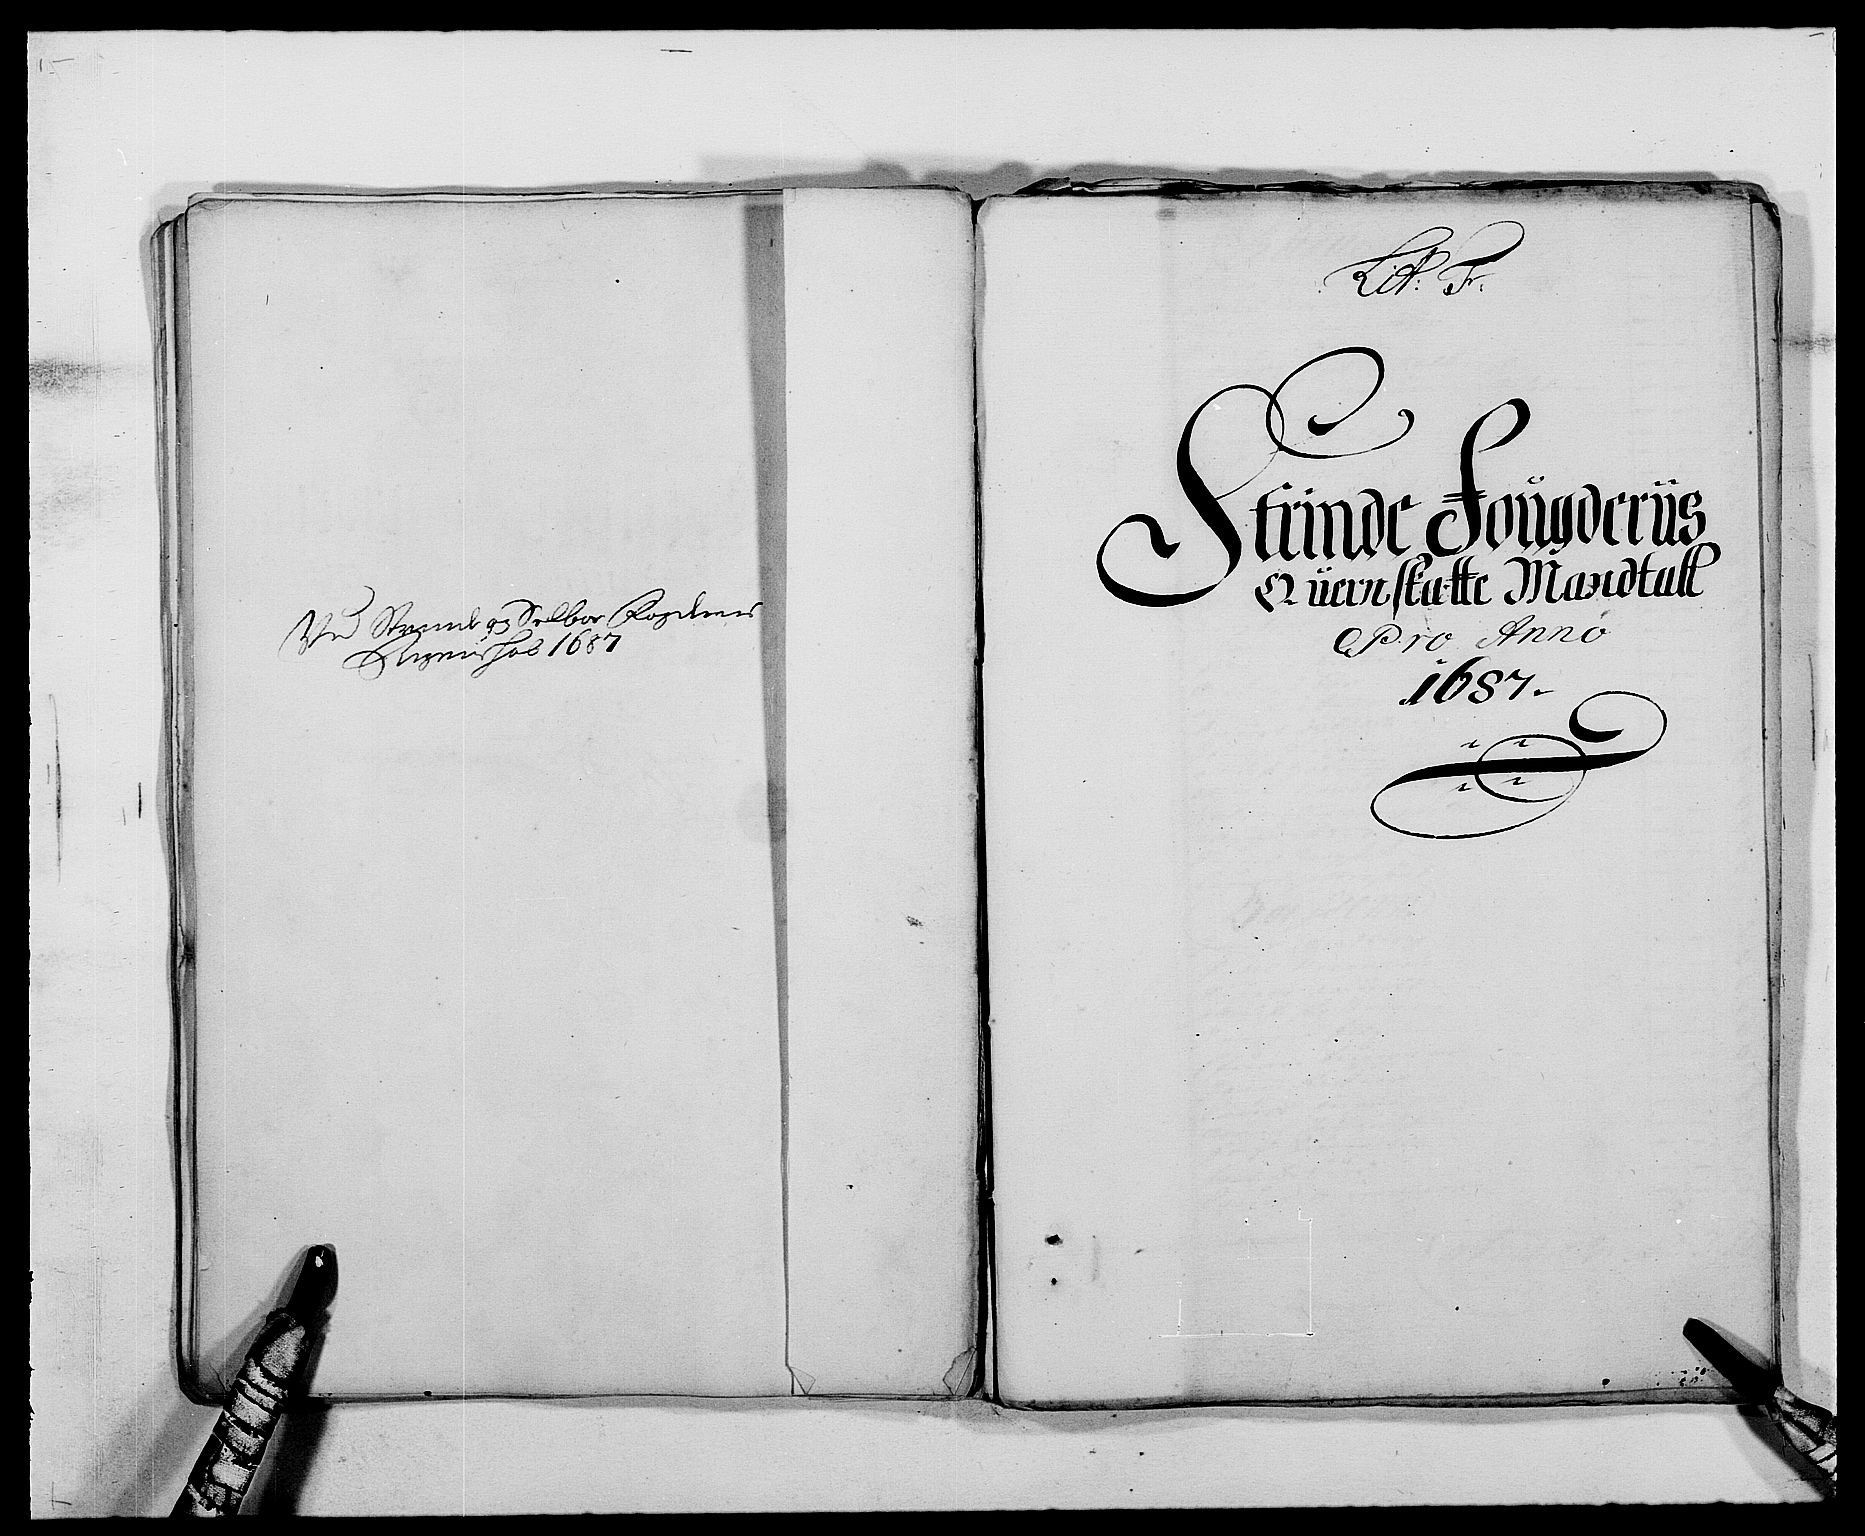 Ved Strinde og Selboe Fogderies
Regenskab 1687
Litt: Fr.
Strinde Foügderiis
Qüernskatte Mandtall
Pro Anno
1687.